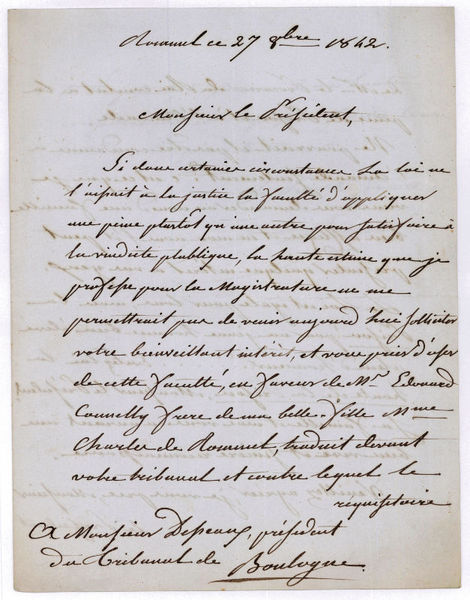 Rommel ce 27 8bre 1842.
Monsieur le Président,
Si dans certaines circonstances La loi ne
l'aissait à la justice la faculté d'appliquer
une peine plutôt qu'une autre pour satisfaire à
la vindicte publique, la haute estime que je
professe pour la Magistrature ne me
permettrait pas de venir aujourd'hui solliciter
votre bienveillant intérêt, et vous prier d'user
de cette faculté, en faveur de Mr. Edouard
Connelly frere de ma belle-fille Mme
Charles de Rommel, traduit devant
votre tribunal et contre lequel le
requisitoire
A Monsieur président
du Tribunal de Boulogne.